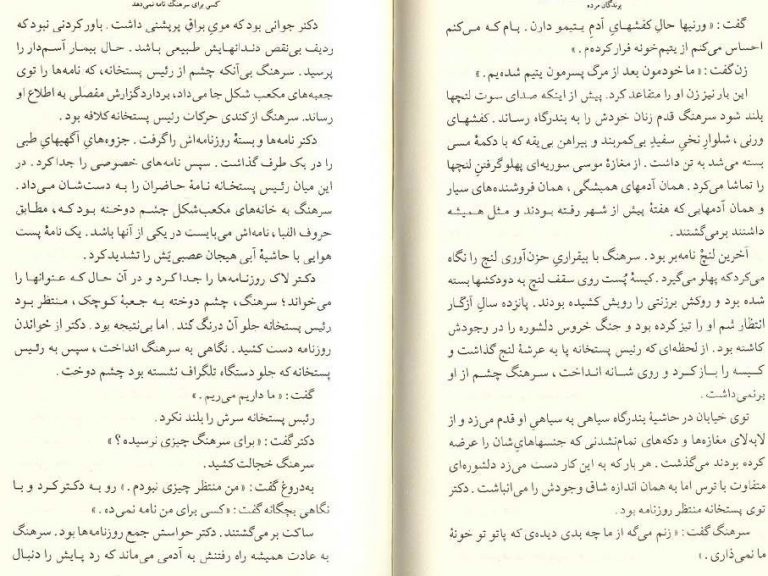 پرندگان مرده
گفت: «ورنیها حال کفشهای آدم یتیمو دارن. پام که می‌کنم
احساس می‌کنم از یتیم‌خونه فرار کرده‌م.»
زن گفت: «ما خودمون بعد از مرگ پسرمون یتیم شده‌یم.»
این بار نیز زن او را متقاعد کرد. پیش از اینکه صدای سوت لنچها
بلند شود سرهنگ قدم زنان خودش را به بندرگاه رساند. کفشهای
ورنی، شلوار نخیِ سفیدِ بی‌کمربند و پیراهن بی‌یقه که با دکمهٔ مسی
بسته می‌شد به تن داشت. از مغازهٔ موسی سوریه‌ای پهلو گرفتن لنچها
را تماشا می‌کرد. همان آدمهای همیشگی، همان فروشنده‌های سیار
و همان آدمهایی که هفتهٔ پیش از شهر رفته بودند و مثل همیشه
داشتند برمی‌گشتند.
آخرین لنچ نامه‌بر بود. سرهنگ با بیقراریِ حزن‌آوری لنچ را نگاه
می‌کرد که پهلو می‌گیرد. کیسهٔ پُست روی سقف لنچ به دودکشها بسته
شده بود و روکش برزنتی را رویش کشیده بودند. پانزده سالِ آزگار
انتظار شم او را تیز کرده بود و جنگ خروس دلشوره را در وجودش
کاشته بود. از لحظه‌ای که رئیس پستخانه پا به عرشهٔ لنچ گذاشت و
کیسه را باز کرد و روی شانه انداخت، سرهنگ چشم از او
برنمی‌داشت.
توی خیابان در حاشیهٔ بندرگاه سیاهی به سیاهی او قدم می‌زد و از
لابه‌لای مغازه‌ها و دکه‌های تمام‌نشدنی که جنسهای‌شان را عرضه
کرده بودند می‌گذشت. هر بار که به این کار دست می‌زد دلشوره‌ای
متفاوت با ترس اما به همان اندازه شاق وجودش را می‌انباشت. دکتر
توی پستخانه منتظر روزنامه بود.
سرهنگ گفت: «زنم می‌گه از ما چه بدی دیده‌ی که پاتو تو خونهٔ
ما نمی‌ذاری.»
کسی برای سرهنگ نامه نمی‌دهد
دکتر جوانی بود که موی براق پرپشتی داشت. باور کردنی نبود که
ردیف بی‌نقص دندانهایش طبیعی باشد. حال بیمار آسم‌دار را
پرسید. سرهنگ بی‌آنکه چشم از رئیس پستخانه، که نامه‌ها را توی
جعبه‌های مکعب شکل جا می‌داد، بردارد گزارش مفصلی به اطلاع او
رساند. سرهنگ از کندی حرکات رئیس پستخانه کلافه بود.
دکتر نامه‌ها و بستهٔ روزنامه‌اش را گرفت. جزوه‌های آگهیهای طبی
را در یک طرف گذاشت. سپس نامه‌های خصوصی را جدا کرد. در
این میان رئیس پستخانه نامهٔ حاضران را به دست‌شان می‌داد.
سرهنگ به خانه‌های مکعب‌شکل چشم دوخته بود که، مطابق
حروف الفبا، نامه‌اش می‌بایست در یکی از آنها باشد. یک نامهٔ پست
هوایی با حاشیهٔ آبی هیجان عصبی‌یَش را تشدید کرد.
دکتر لاک روزنامه‌ها را جدا کرد و در آن حال که عنوانها را
می‌خواند؛ سرهنگ، چشم دوخته به جعبهٔ کوچک، منتظر بود
رئیس پستخانه جلو آن درنگ کند. اما بی‌نتیجه بود. دکتر از خواندن
روزنامه دست کشید. نگاهی به سرهنگ انداخت، سپس به رئیس
پستخانه که جلو دستگاه تلگراف نشسته بود چشم دوخت.
گفت: «ما داریم می‌ریم.»
رئیس پستخانه سرش را بلند نکرد.
دکتر گفت: «برای سرهنگ چیزی نرسیده؟»
سرهنگ خجالت کشید.
به‌دروغ گفت: «من منتظر چیزی نبودم.» رو به دکتر کرد و با
نگاهی بچگانه گفت: «کسی برای من نامه نمی‌ده.»
ساکت برمی‌گشتند. دکتر حواسش جمع روزنامه‌ها بود. سرهنگ
به عادت همیشه راه رفتنش به آدمی می‌ماند که رد پایش را دنبال